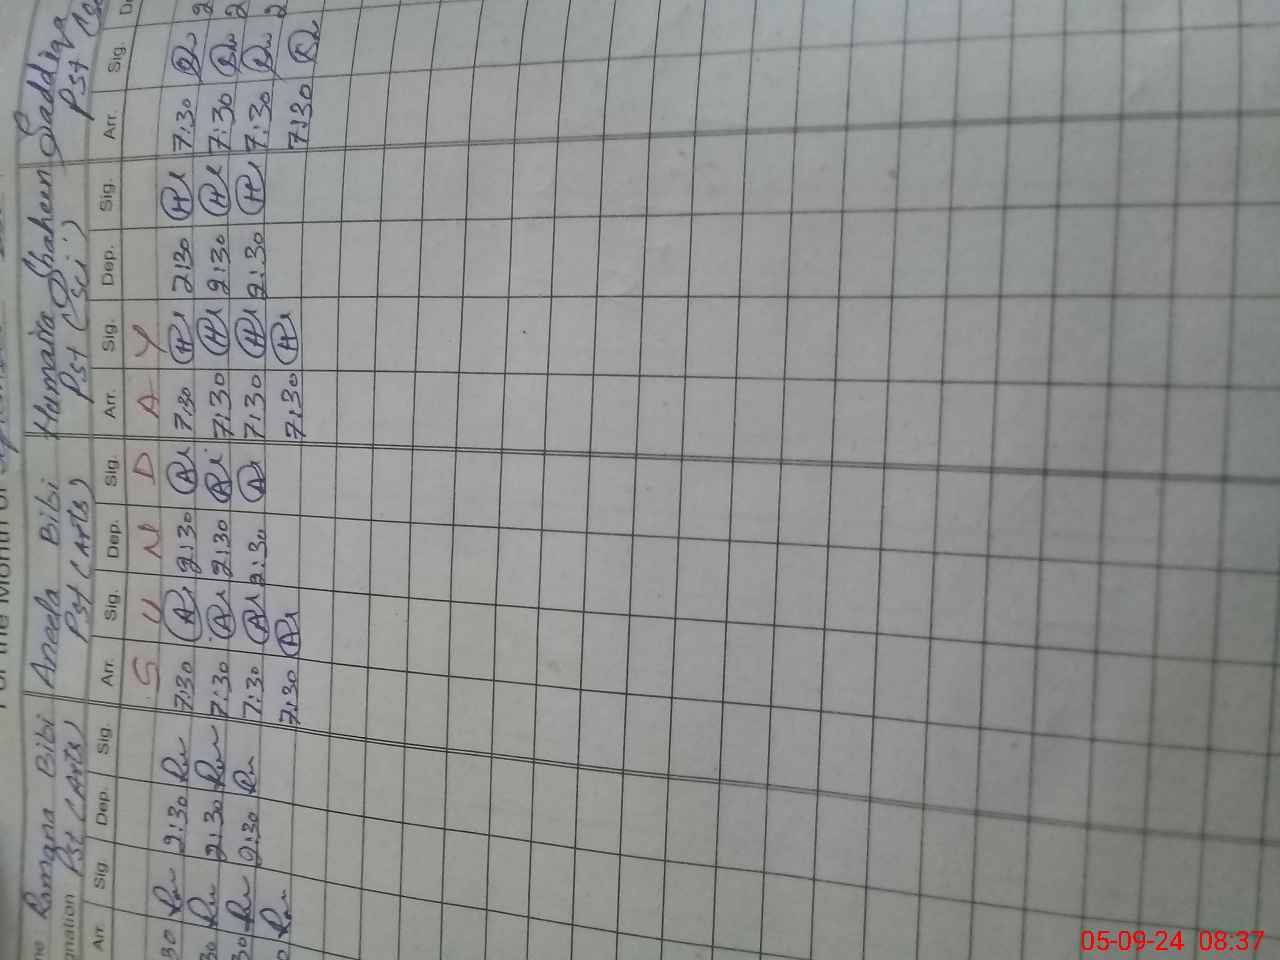 For the Month of
Romana Bibi Aneela Bibi Humaira Shaheen Saddiqa
Pst (Arts) Pst (Arts) Pst (Sci) Pst
Arr. Sig. Dep. Sig. Arr. Sig. Dep. Sig. Arr. Sig. Dep. Sig. Arr. Sig.
S U N D A Y
30 Rn 2:30 Rn 7:30 A 2:30 A 7:30 H 2:30 H 7:30
30 Rn 2:30 Rn 7:30 A 2:30 A 7:30 H 2:30 H 7:30
30 Rn 2:30 Rn 7:30 A 2:30 A 7:30 H 2:30 H 7:30
Rn 7:30 A 7:30 H 7:30
05-09-24 08:37